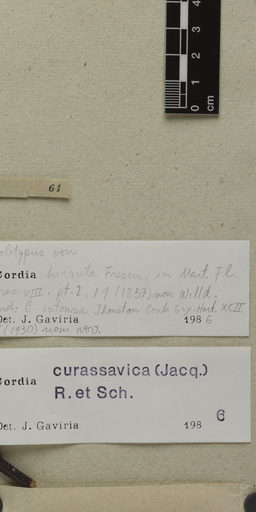 4
3
2
1
0
cm
61
olotypus von
Cordia hirsuta Fresen, in Mart. Fl.
ras. VIII. pt. 1, 17 (1857) non Willd.
C. intonsa Johnston Contr. Gray Herb. XCII,
Det. J. Gaviria 198 6
(1930) nom. nov.
Cordia curassavica (Jacq.)
R. et Sch.
Det. J. Gaviria 198 6